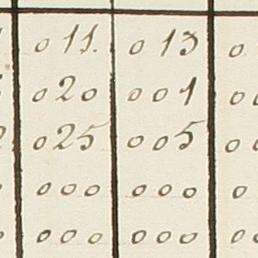 0 11. 0 13 0
0 20 0 0 1 0
0 25 0 0 5 0
0 0 0 0 0 0 0
0 0 0 0 0 0 0